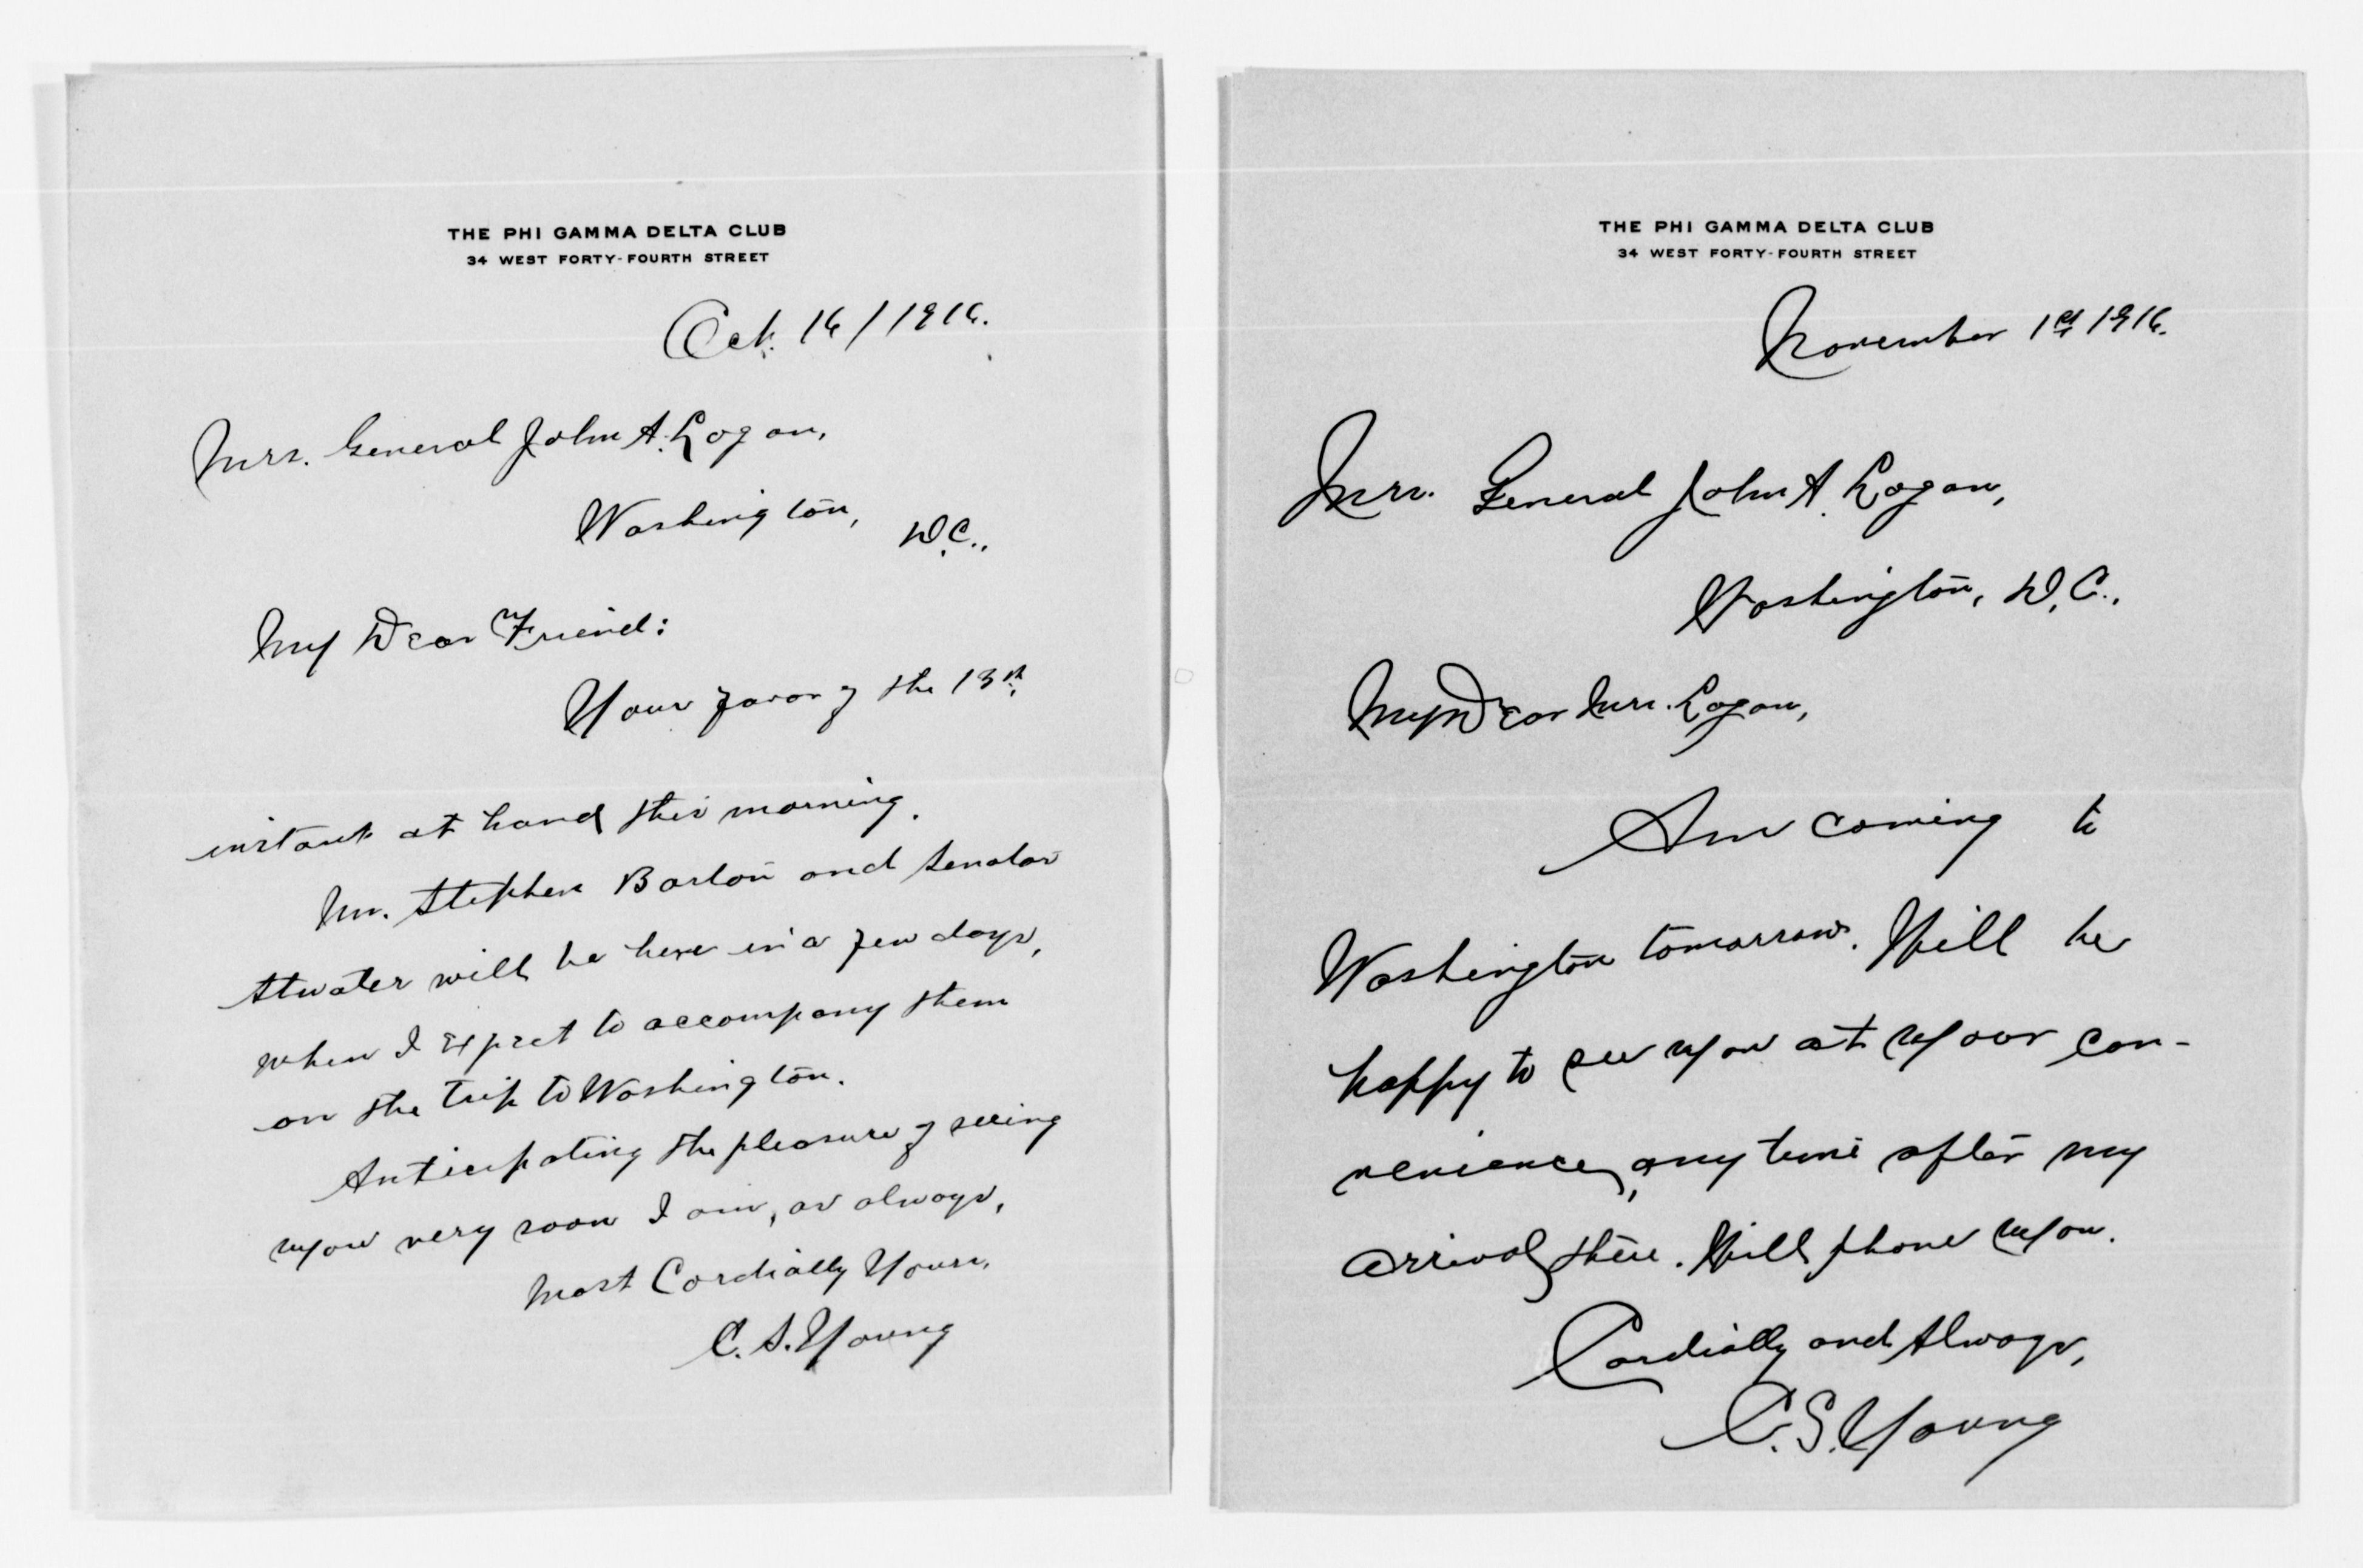 THE PHI GAMMA DELTA CLUB
34 WEST FORTY-FOURTH STREET
Oct. 16/1916.
Mrs. General John A. Logan,
Washington,
D.C.,
My Dear Friend:
Your favor of the 13th
instant at hand this morning.
Mr. Stephen Barton and Senator
Atwater will be here in a few days,
when I expect to accompany them
on the trip to Washington.
Anticipating the pleasure of seeing
you very soon I am, as always,
Most Cordially Yours,
C. S. Young
THE PHI GAMMA DELTA CLUB
34 WEST FORTY-FOURTH STREET
November 1st 1916.
Mrs. General John A. Logan,
Washington, D.C.,
My Dear Mrs. Logan,
Am coming to
Washington tomorrow. Will be
happy to see you at your con-
venience, any time after my
arrival there. Will phone you.
Cordially and Always,
C. S. Young